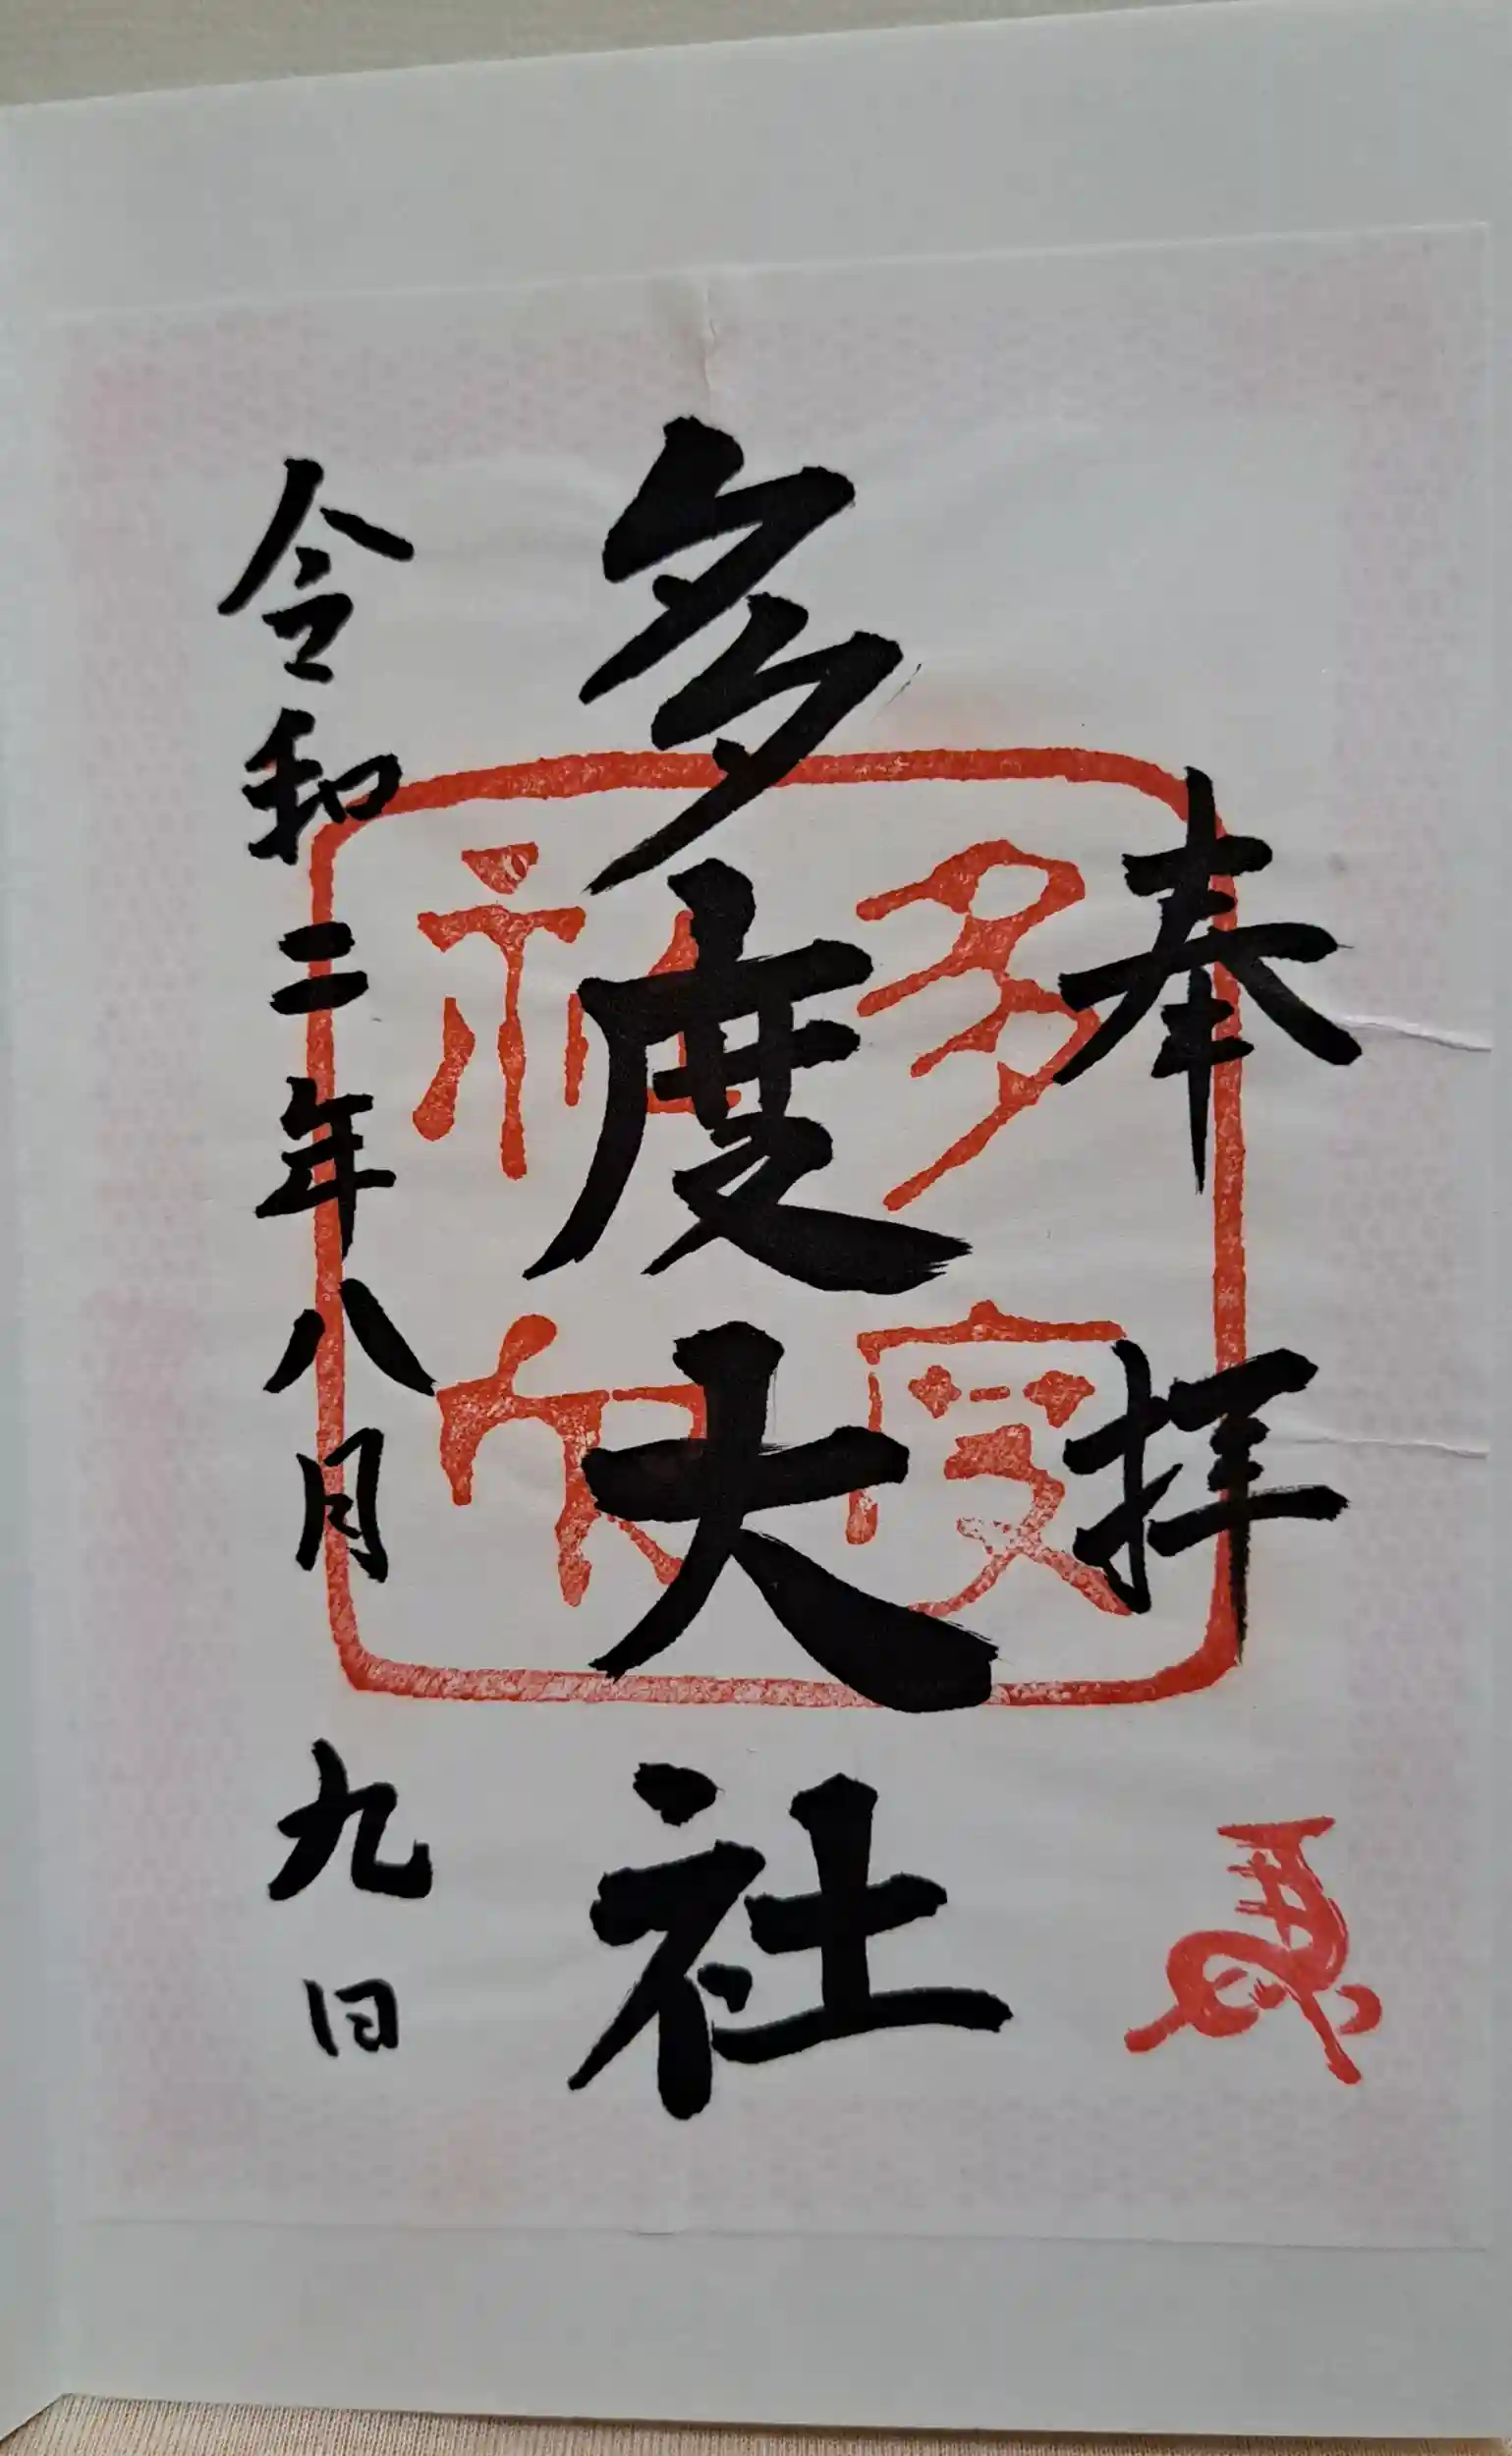 奉拝
多度大社
多度神社
令和二年八月九日